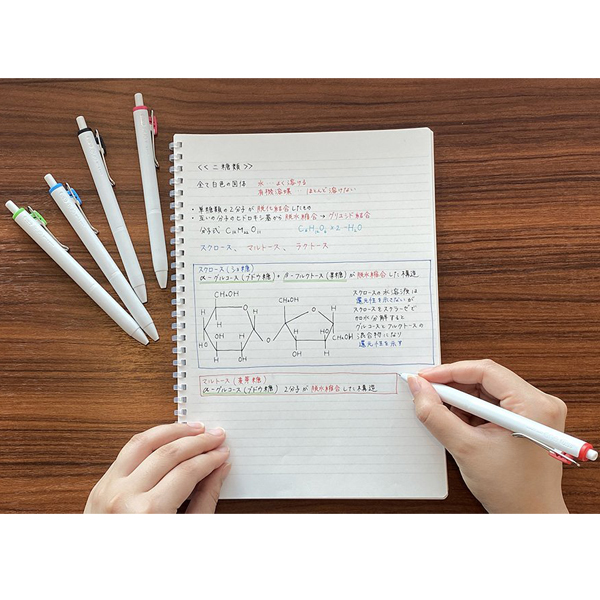 << 二糖類 >>
全て白色の固体 水…よく溶ける
有機溶媒 ほとんど溶けない
・単糖類の2分子が脱水縮合したもの
・互いの分子のヒドロキシ基から脱水縮合→グリコシド結合
分子式 C₁₂H₂₂O₁₁ C₆H₁₂O₆×2-H₂O
スクロース、マルトース、ラクトース
スクロース(ショ糖)
α-グルコース(ブドウ糖)+β-フルクトース(果糖)が脱水縮合した構造
スクロースの水溶液は
還元性を示さないが
スクロースをスクラーゼで
加水分解すると
グルコースとフルクトースの
混合物になり
還元性を示す
CH₂OH
CH₂OH
O
O
H
H
H
HO
OH
H
H
OH
O
H
HO
OH
H
CH₂OH
マルトース(麦芽糖)
α-グルコース(ブドウ糖) 2分子が脱水縮合した構造